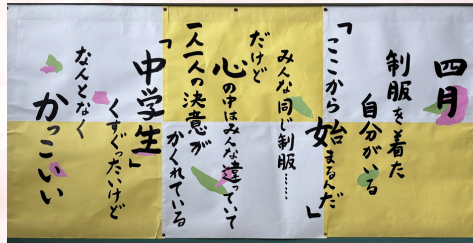 四月
制服を着た
自分がいる
「ここから始まるんだ」
みんな同じ制服……
だけど
心の中はみんな違っていて
一人一人の決意が
かくれている
「中学生」
くすぐったいけど
なんとなく
かっこいい